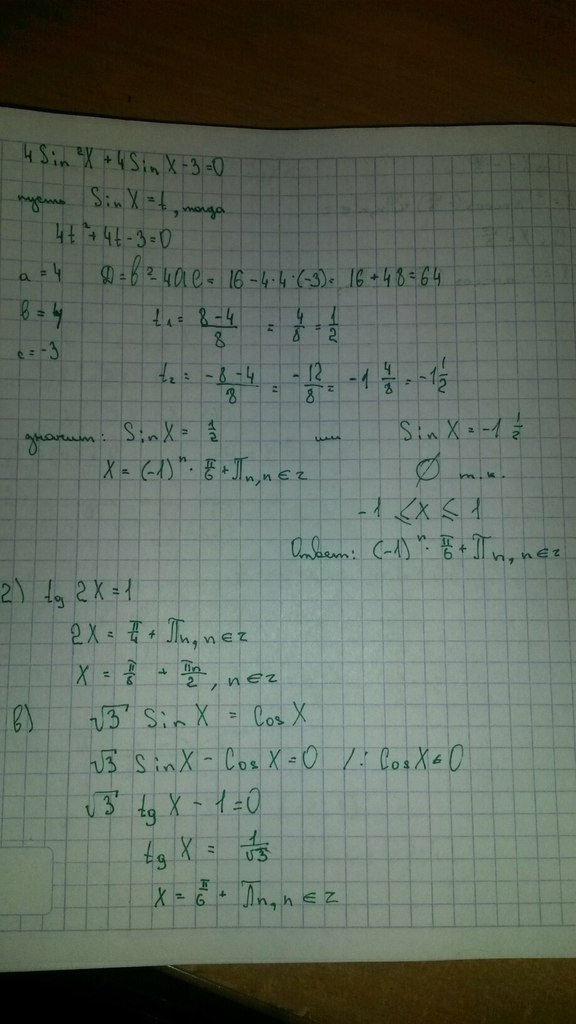 4Sin²X + 4SinX - 3 = 0
пусть SinX = t, тогда
4t² + 4t - 3 = 0
a = 4 D = b² - 4ac = 16 - 4·4·(-3) = 16 + 48 = 64
b = 4 t₁ = (8-4)/8 = 4/8 = 1/2
c = -3
t₂ = (-8-4)/8 = -12/8 = -1 4/8 = -1 1/2
значит: SinX = 1/2 или SinX = -1 1/2
X = (-1)ⁿ · π/6 + πn, n ∈ z ∅ т.к.
-1 ≤ X ≤ 1
Ответ: (-1)ⁿ · π/6 + πn, n ∈ z
2) tg 2X = 1
2X = π/4 + πn, n ∈ z
X = π/8 + πn/2, n ∈ z
в) √3 SinX = CosX
√3 SinX - CosX = 0 /: CosX ≠ 0
√3 tg X - 1 = 0
tg X = 1/√3
X = π/6 + πn, n ∈ z